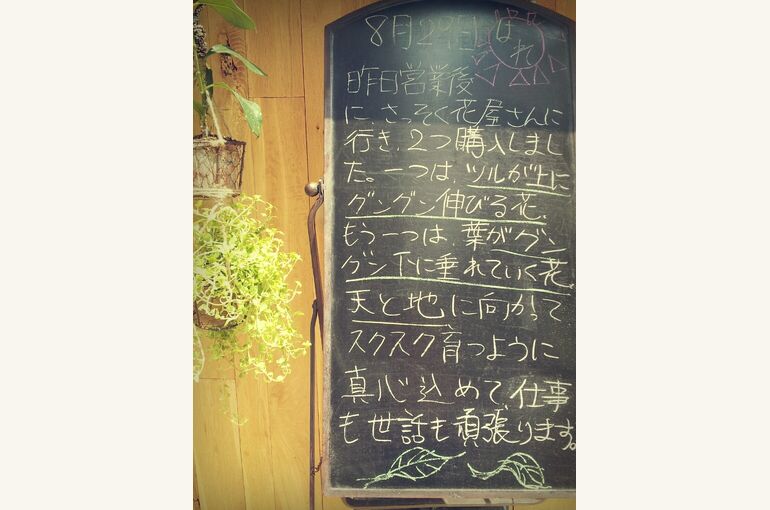 8月29日 はれ
昨日営業後
に、さっそく花屋さんに
行き、2つ購入しまし
た。一つは、ツルが上に
グングン伸びる花、
もう一つは、葉がグン
グン下に垂れていく花。
天と地に向かって
スクスク育つように
真心込めて、仕事
も世話も頑張ります。